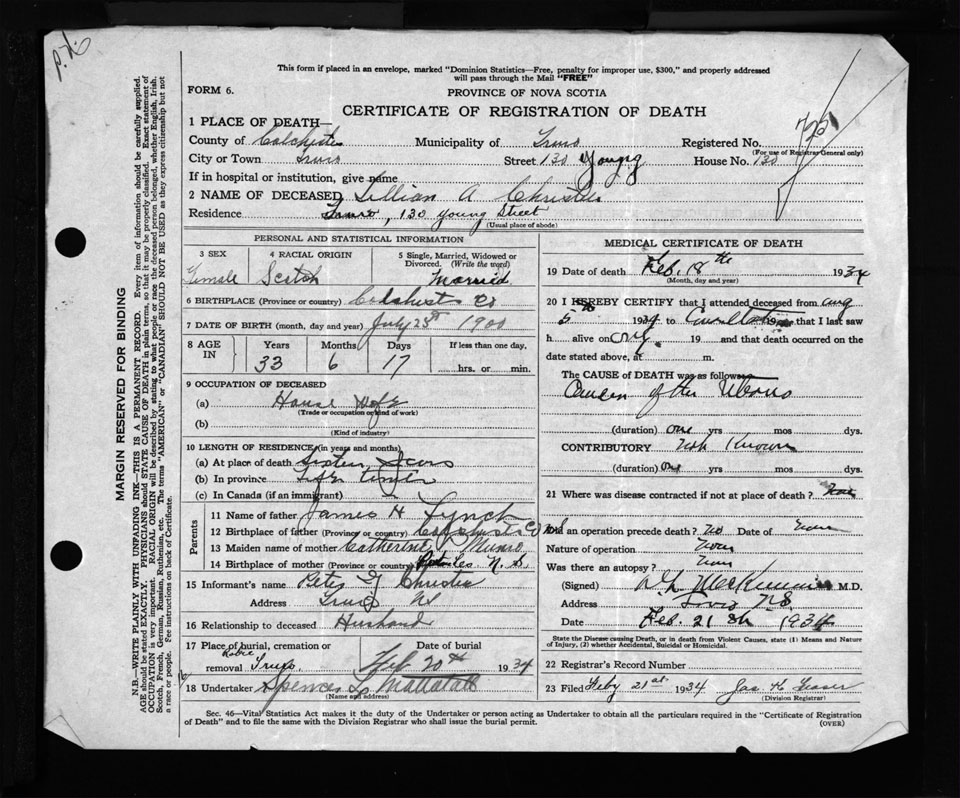 P.N.
This form if placed in an envelope, marked "Dominion Statistics—Free, penalty for improper use, $300," and properly addressed
will pass through the Mail "FREE"
FORM 6.
PROVINCE OF NOVA SCOTIA
CERTIFICATE OF REGISTRATION OF DEATH
725
1 PLACE OF DEATH—
County of Colchester Municipality of Truro Registered No.
(For use of Registrar General only)
City or Town Truro Street 130 Young House No. 130
If in hospital or institution, give name
2 NAME OF DECEASED Lillian A Christie
Residence Truro, 130 Young Street
(Usual place of abode)
PERSONAL AND STATISTICAL INFORMATION
3 SEX 4 RACIAL ORIGIN 5 Single, Married, Widowed or Divorced. (Write the word)
Female Scotch Married
6 BIRTHPLACE (Province or country) Colchester Co
7 DATE OF BIRTH (month, day and year) July 25th 1900
8 AGE IN Years Months Days If less than one day,
33 6 17 hrs. or min.
9 OCCUPATION OF DECEASED
(a) House Wife
(Trade or occupation or kind of work)
(b)
(Kind of industry)
10 LENGTH OF RESIDENCE (in years and months)
(a) At place of death Sixteen Years
(b) In province Life time
(c) In Canada (if an immigrant)
Parents
11 Name of father James H Lynch
12 Birthplace of father (Province or country) Colchester Co N S
13 Maiden name of mother Catherine Munro
14 Birthplace of mother (Province or country) N. S.
15 Informant's name Peter Christie
Address Truro NS
16 Relationship to deceased Husband
17 Place of burial, cremation or removal Date of burial
Robie Truro Feb 20th 1934
18 Undertaker Spencer Mattatall
(Name and address)
MEDICAL CERTIFICATE OF DEATH
19 Date of death Feb. 18th 1934
(Month, day and year)
20 I HEREBY CERTIFY that I attended deceased from Aug
5th 19 to 19 that I last saw
h alive on 19 and that death occurred on the
date stated above, at m.
The CAUSE OF DEATH was as follows:
of the Uterus
(duration) one yrs mos dys.
CONTRIBUTORY Not Known
(duration) one yrs mos dys.
21 Where was disease contracted if not at place of death?
Did an operation precede death? No Date of
Nature of operation
Was there an autopsy?
(Signed) M.D.
Address Truro N.S.
Date Feb. 21st 1934
State the Disease causing Death, or in death from Violent Causes, state (1) Means and Nature
of Injury, (2) whether Accidental, Suicidal or Homicidal.
22 Registrar's Record Number
23 Filed Feby 21st 1934 Jas H Fraser
(Division Registrar)
Sec. 46—Vital Statistics Act makes it the duty of the Undertaker or person acting as Undertaker to obtain all the particulars required in the "Certificate of Registration
of Death" and to file the same with the Division Registrar who shall issue the burial permit. (OVER)
MARGIN RESERVED FOR BINDING
N.B.—WRITE PLAINLY WITH UNFADING INK—THIS IS A PERMANENT RECORD. Every item of information should be carefully supplied.
AGE should be stated EXACTLY. PHYSICIANS should STATE CAUSE OF DEATH in plain terms, so that it may be properly classified. Exact statement of
OCCUPATION is very important. RACIAL ORIGIN will be described by stating to what people or race the deceased person belonged, whether English, Irish,
Scotch, French, German, Russian, Ruthenian, etc. The terms "AMERICAN" or "CANADIAN" SHOULD NOT BE USED as they express citizenship but not
a race or people. See instructions on back of Certificate.